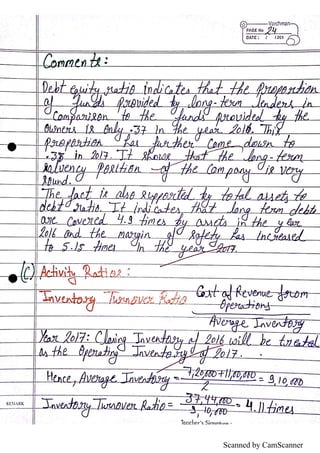 Vardhman
PAGE No. 24
DATE: / /201
Comments:
Debt equity ratio indicates that the proportion
of funds provided by long-term lenders in
comparison to the funds provided by the
owners is only .37 in the year 2016. This
proportion has further come down to
in 2017. It shows that the long-term
solvency position of the company is very
sound.
The fact is also supported by total assets to
debt ratio. It indicates that long term debts
are covered 4.9 times by assets in the year
2016 and the margin of safety has increased
to 5.15 times in the year 2017.
(C) Activity Ratios:
Inventory Turnover Ratio Cost of Revenue from
Operations
Average Inventory
Year 2017: Closing Inventory of 2016 will be treated
as the Operating Inventory of 2017.
Hence, Average Inventory = 7,20,000+11,00,000 = 9,10,000
2
REMARK
Inventory Turnover Ratio = 37,44,000 = 4.11 times
9,10,000
Teacher's Signature
Scanned by CamScanner